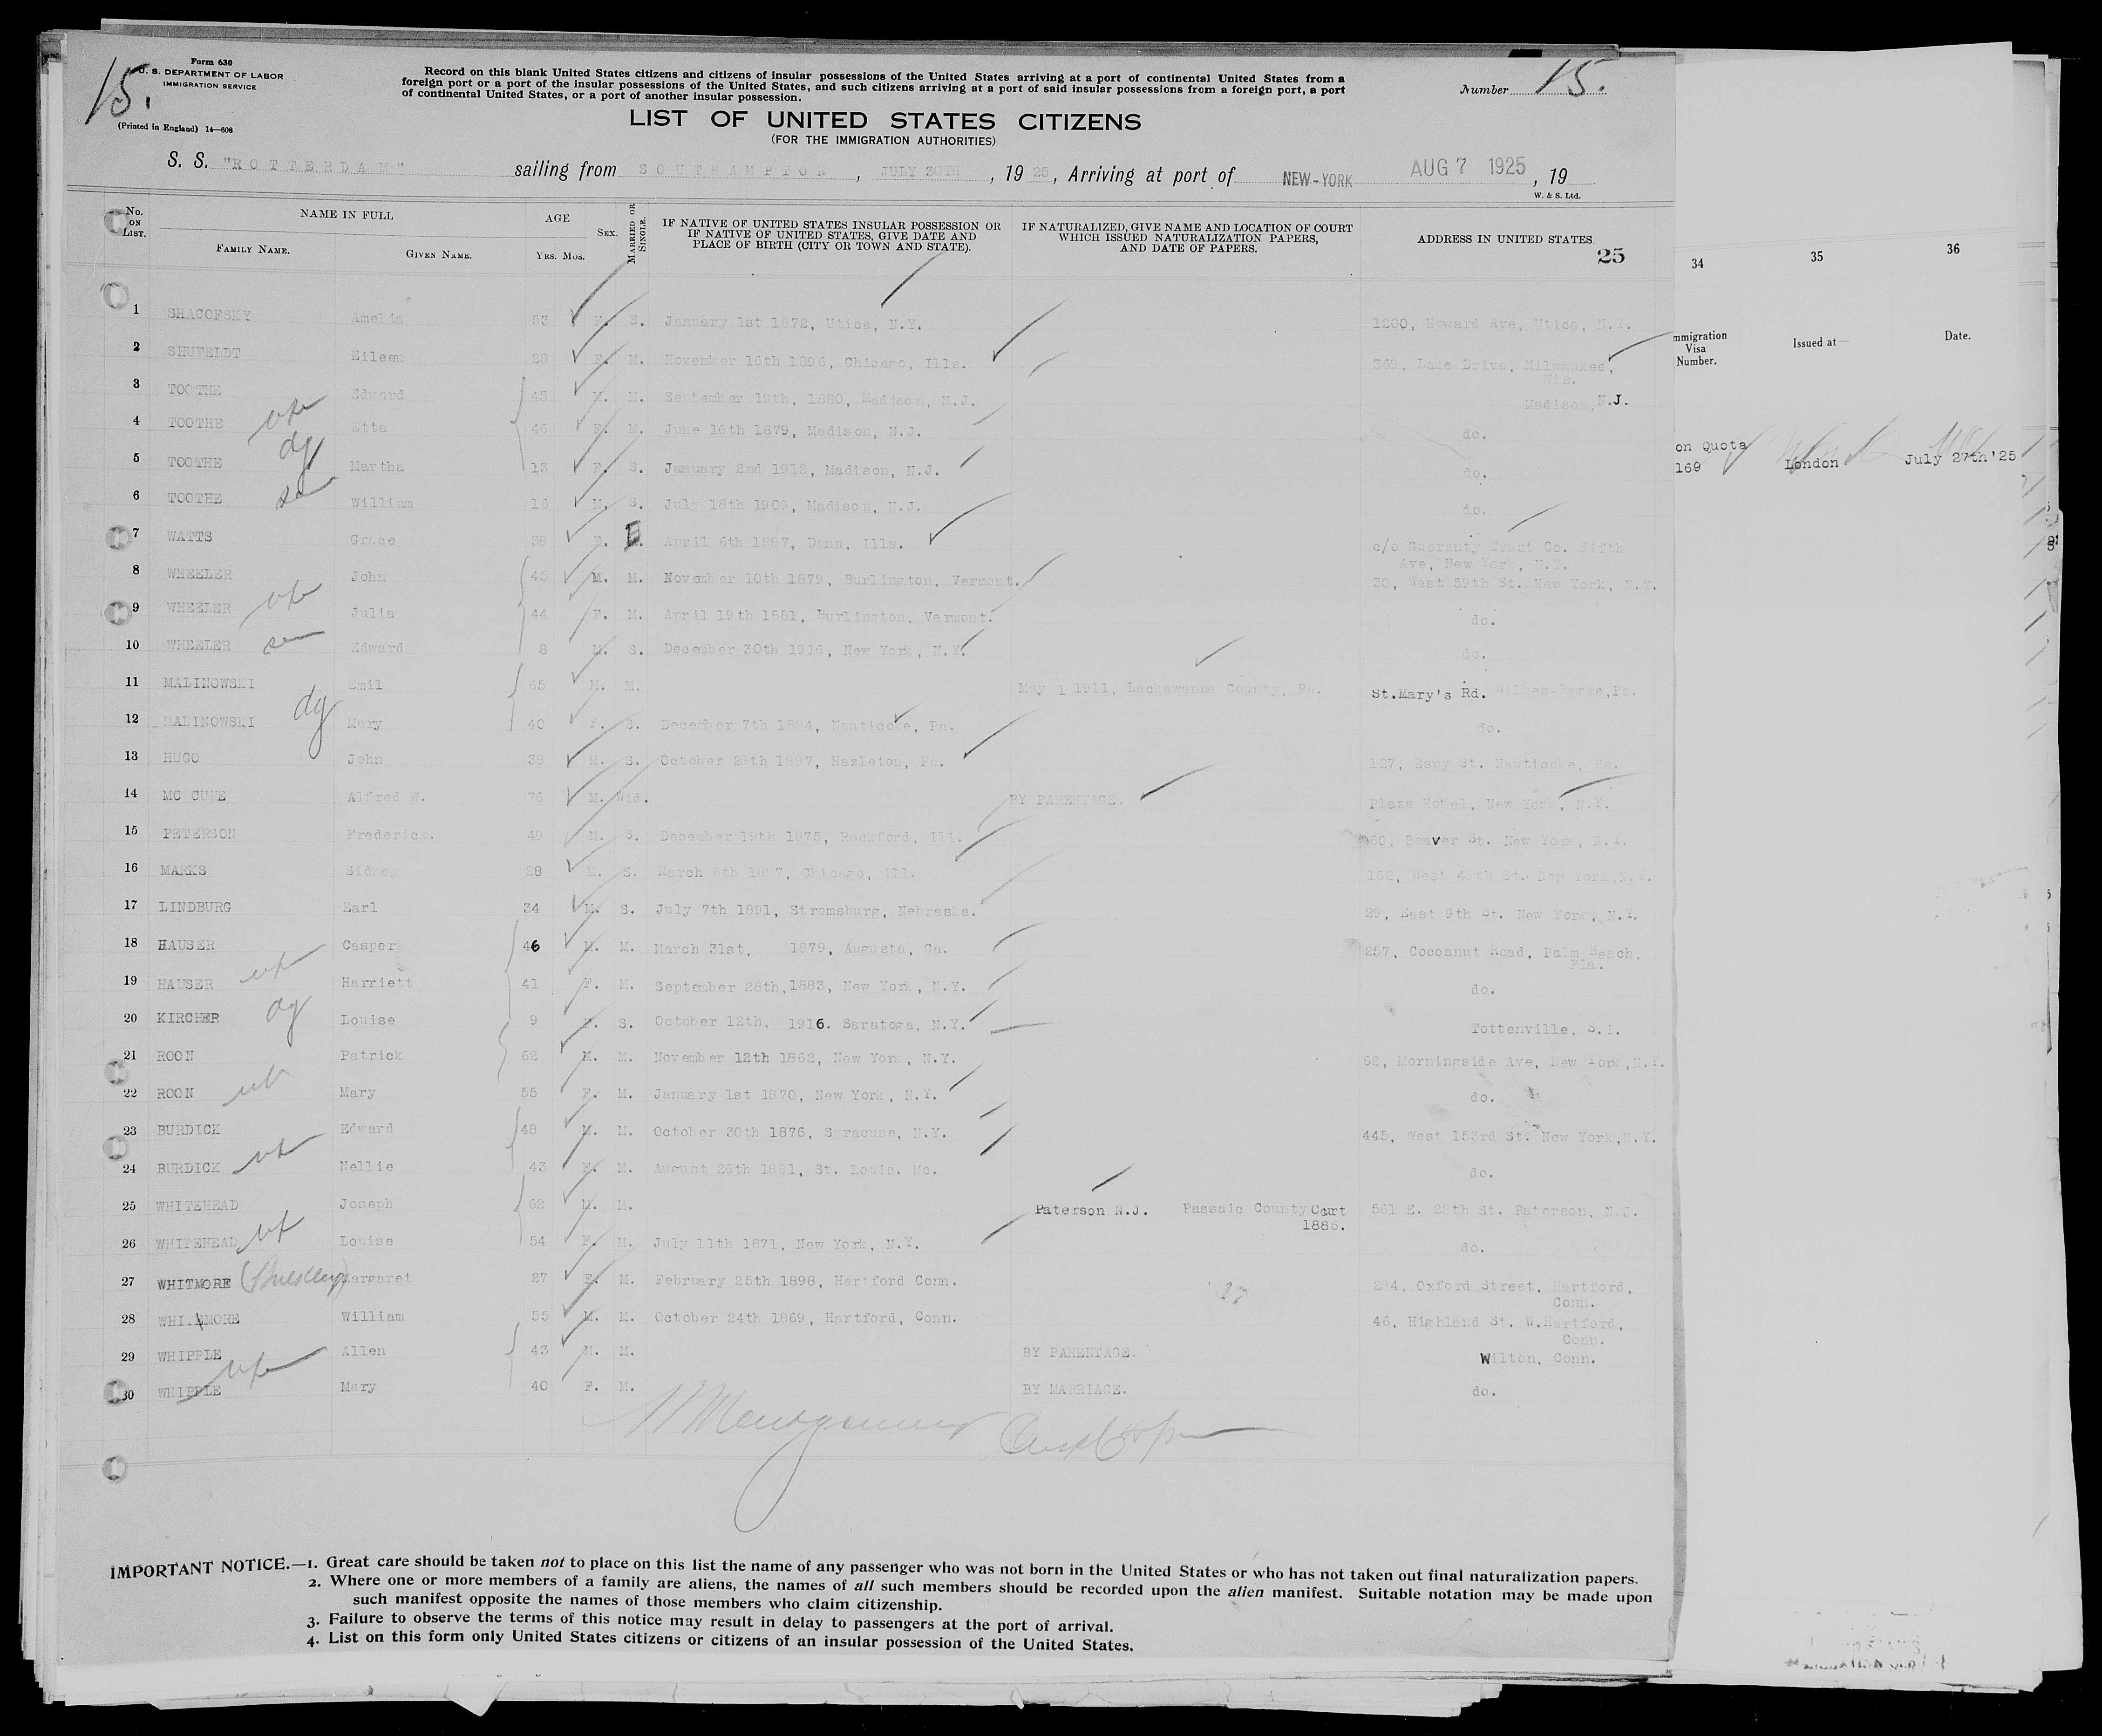 15.
Form 630
U. S. DEPARTMENT OF LABOR
IMMIGRATION SERVICE
(Printed in England) 14—608
Record on this blank United States citizens and citizens of insular possessions of the United States arriving at a port of continental United States from a
foreign port or a port of the insular possessions of the United States, and such citizens arriving at a port of said insular possessions from a foreign port, a port
of continental United States, or a port of another insular possession.
Number 15.
LIST OF UNITED STATES CITIZENS
(FOR THE IMMIGRATION AUTHORITIES)
S. S. "ROTTERDAM" sailing from SOUTHAMPTON, JULY 30TH, 1925, Arriving at port of NEW-YORK AUG 7 1925, 19
W. & S. Ltd.
No. ON LIST. NAME IN FULL FAMILY NAME. GIVEN NAME. AGE YRS. MOS. SEX. MARRIED OR SINGLE. IF NATIVE OF UNITED STATES INSULAR POSSESSION OR IF NATIVE OF UNITED STATES, GIVE DATE AND PLACE OF BIRTH (CITY OR TOWN AND STATE). IF NATURALIZED, GIVE NAME AND LOCATION OF COURT WHICH ISSUED NATURALIZATION PAPERS, AND DATE OF PAPERS. ADDRESS IN UNITED STATES.
25
1 SHACOFSKY Amelia 53 F. S. January 1st 1872, Utica, N.Y. 1200, Howard Ave, Utica, N.Y.
2 SHUFELDT Eileen 28 F. M. November 16th 1896, Chicago, Ills. 369, Lake Drive, Milwaukee, Wis.
3 TOOTHE Edward 45 M. M. September 19th, 1880, Madison, N.J. Madison, N.J.
4 TOOTHE Etta 46 F. M. June 16th 1879, Madison, N.J. do.
5 TOOTHE dg Martha 13 F. S. January 2nd 1912, Madison, N.J. do.
6 TOOTHE son William 16 M. S. July 18th 1909, Madison, N.J. do.
7 WATTS Grace 38 F. April 6th 1887, Dana, Ills. c/o Guaranty Trust Co. Fifth Ave, New York, N.Y.
8 WHEELER John 45 M. M. November 10th 1879, Burlington, Vermont. 30, West 59th St. New York, N.Y.
9 WHEELER Julia 44 F. M. April 19th 1881, Burlington, Vermont. do.
10 WHEELER son Edward 8 M. S. December 30th 1916, New York, N.Y. do.
11 MALINOWSKI Emil 65 M. M. May 1 1911, Lackawanna County, Pa. St.Mary's Rd. Wilkes-Barre, Pa.
12 MALINOWSKI dg Mary 40 F. S. December 7th 1884, Nauticoke, Pa. do.
13 HUGO John 38 M. S. October 28th 1887, Hazleton, Pa. 127, Espy St. Nauticoke, Pa.
14 MC CUNE Alfred W. 76 M. Wid. BY PARENTAGE. Plaza Hotel, New York, N.Y.
15 PETERSON Frederick. 49 M. S. December 19th 1875, Rockford, Ill. 60, Beaver St. New York, N.Y.
16 MARKS Sidney 28 M. S. March 6th 1897, Chicago, Ill. 162, West St. New York, N.Y.
17 LINDBURG Earl 34 M. S. July 7th 1891, Stromsburg, Nebraska. 29, East 9th St. New York, N.Y.
18 HAUSER Casper 46 M. M. March 31st, 1879, Augusta, Ga. 257, Cocoanut Road, Palm Beach, Fla.
19 HAUSER Harriett 41 F. M. September 28th, 1883, New York, N.Y. do.
20 KIRCHER dg Louise 9 F. S. October 12th, 1916. Saratoga, N.Y. Tottenville, S.I.
21 ROON Patrick 62 M. M. November 12th 1862, New York, N.Y. 62, Morningside Ave, New York, N.Y.
22 ROON Mary 55 F. M. January 1st 1870, New York, N.Y. do.
23 BURDICK Edward 48 M. M. October 30th 1876, Syracuse, N.Y. 445, West 153rd St. New York, N.Y.
24 BURDICK Nellie 43 F. M. August 26th 1881, St. Louis. Mo. do.
25 WHITEHEAD Joseph 62 M. M. Paterson N.J. Passaic County Court 1886. 561 E. 28th St. Paterson, N.J.
26 WHITEHEAD Louise 54 F. M. July 11th 1871, New York, N.Y. do.
27 WHITMORE Margaret 27 F. M. February 25th 1898, Hartford Conn. 284, Oxford Street, Hartford, Conn.
28 WHITMORE William 55 M. M. October 24th 1869, Hartford, Conn. 46, Highland St. W.Hartford, Conn.
29 WHIPPLE Allen 43 M. M. BY PARENTAGE. Wilton, Conn.
30 WHIPPLE Mary 40 F. M. BY MARRIAGE. do.
27
IMPORTANT NOTICE.—1. Great care should be taken not to place on this list the name of any passenger who was not born in the United States or who has not taken out final naturalization papers.
2. Where one or more members of a family are aliens, the names of all such members should be recorded upon the alien manifest. Suitable notation may be made upon
such manifest opposite the names of those members who claim citizenship.
3. Failure to observe the terms of this notice may result in delay to passengers at the port of arrival.
4. List on this form only United States citizens or citizens of an insular possession of the United States.
34 35 36
mmigration Visa Number. Issued at— Date.
on Quota
169 London July 27th '25